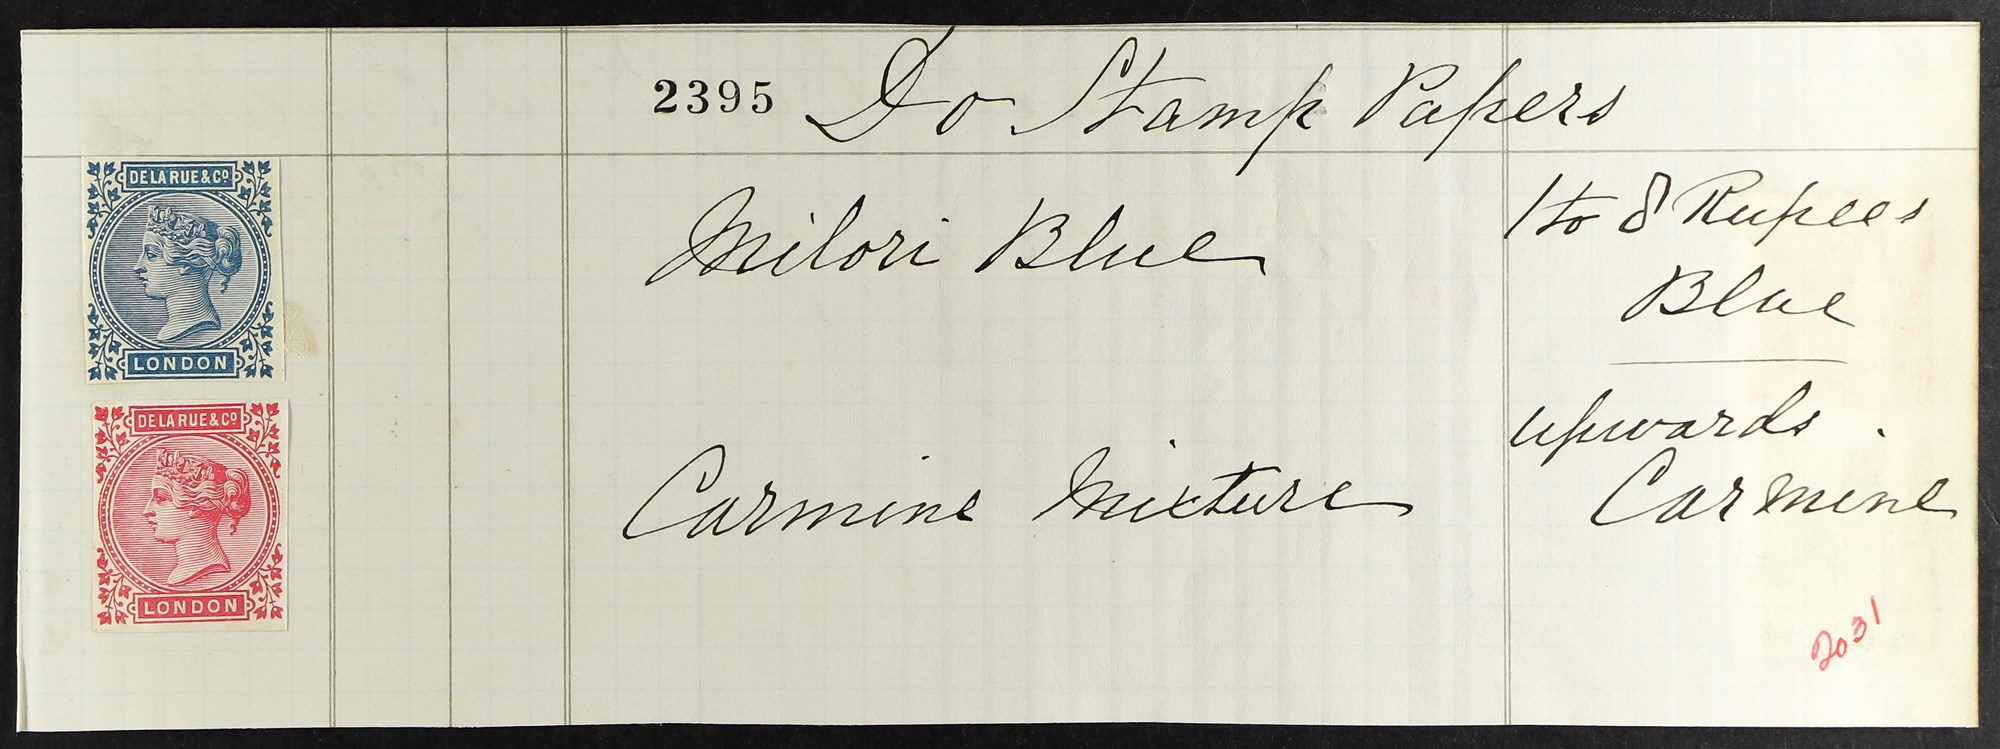 2395 Do Stamp Papers
DE LA RUE & Co
LONDON
Milori Blue
1 to 8 Rupees
Blue
DE LA RUE & Co
LONDON
Carmine Mixture
upwards.
Carmine
2031